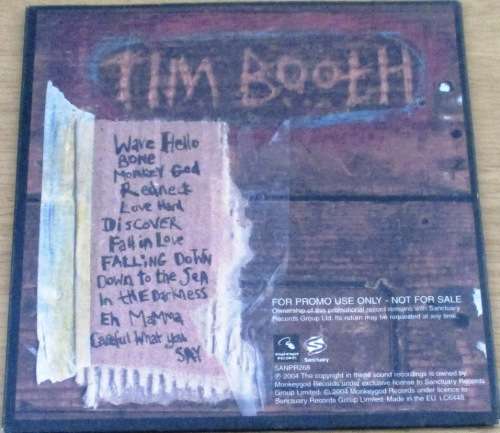 TIM BOOTH
Wave Hello
BONE
Monkey God
Redneck
Love Hard
DISCOVER
Fall in Love
FALLING DOWN
Down to the SEA
In tHE DARKNESS
Eh Mamma
Careful What you
SAY
FOR PROMO USE ONLY - NOT FOR SALE
Ownership of this promotional record remains with Sanctuary
Records Group Ltd. Its return may be requested at any time.
Sanctuary
SANPR268
℗ 2004 The copyright in these sound recordings is owned by
Monkeygod Records under exclusive license to Sanctuary Records
Group Limited. © 2004 Monkeygod Records under licence to
Sanctuary Records Group Limited. Made in the EU. LC6448.